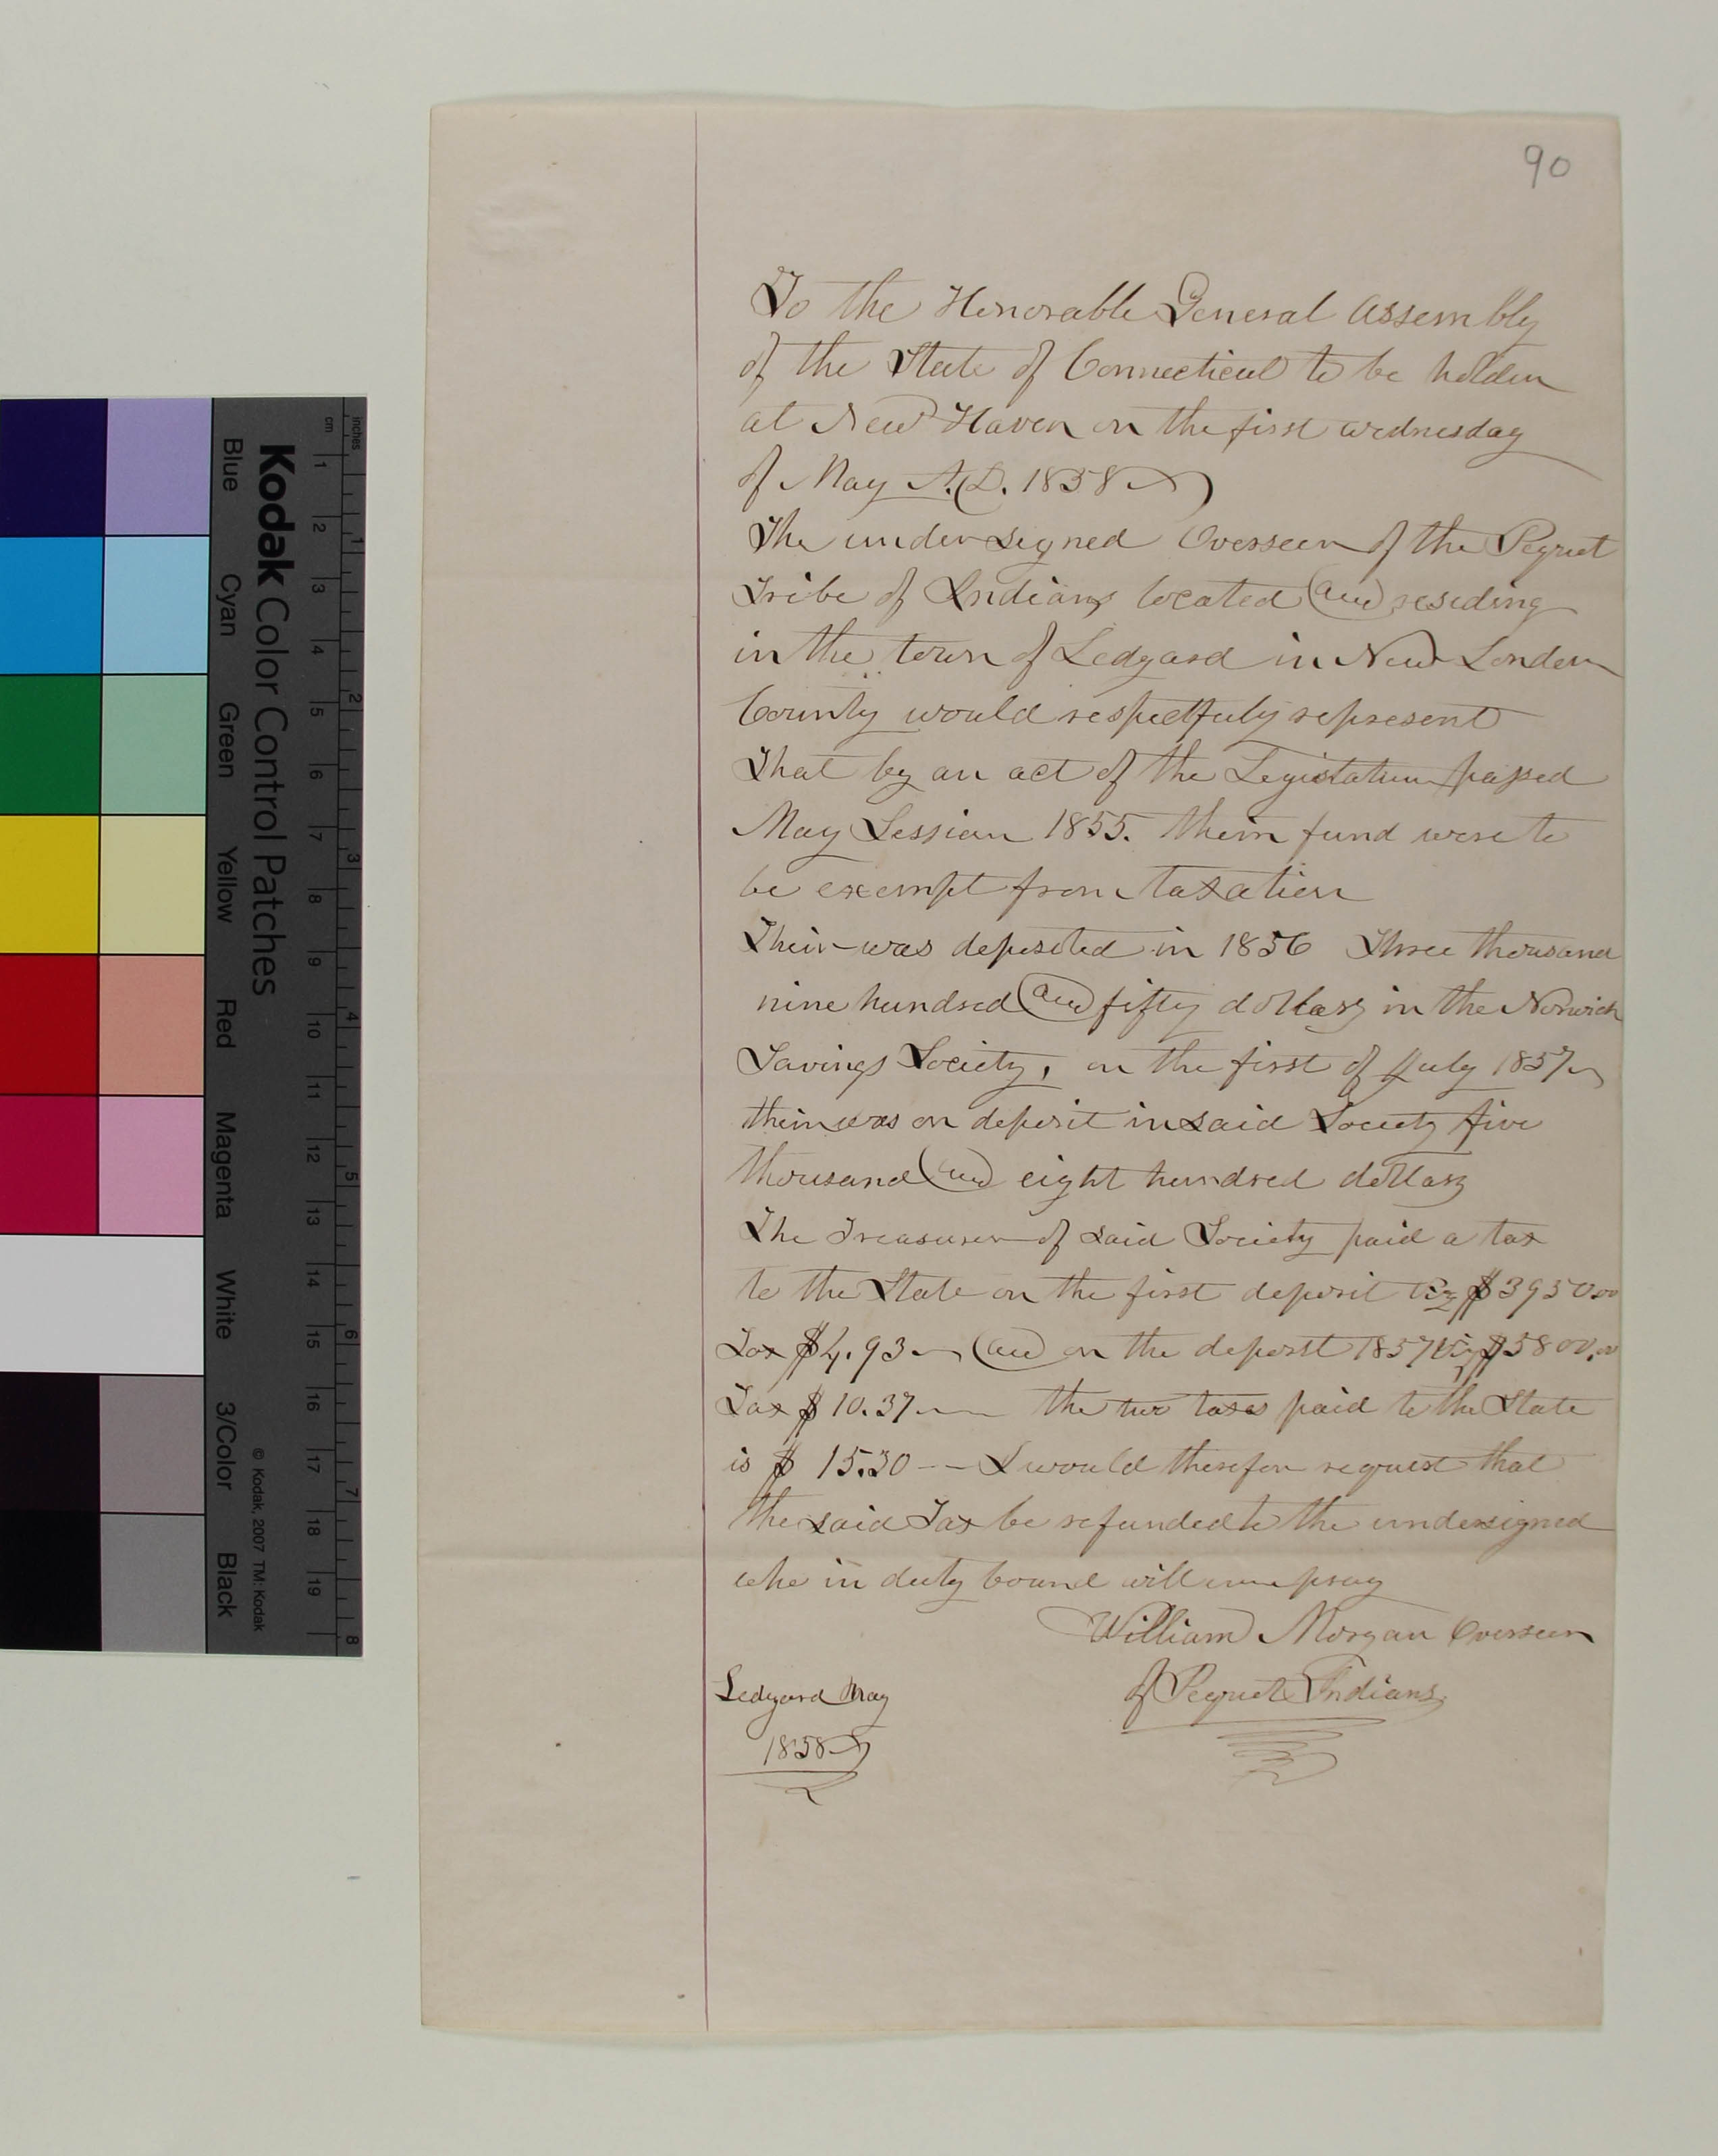 90
To the Honorable General Assembly
of the State of Connecticut to be holden
at New Haven on the first wednesday
of May A.D. 1858
The undersigned Overseer of the Pequet
Tribe of Indians located and residing
in the town of Ledyard in New London
County would respectfuly represent
That by an act of the Legislature passed
May Session 1855. their fund were to
be exempt from taxation
Their was deposited in 1856 Three thousand
nine hundred and fifty dollars in the Norwich
Savings Society, on the first of July 1857
their was on deposit in said Society five
thousand and eight hundred dollars
The Treasurer of said Society paid a tax
to the State on the first deposit viz $3950.00
Tax $4.93 and on the deposit 1857 viz $5800.00
Tax $10.37 the two taxes paid to the State
is $15.30 -- I would therefor request that
the said Tax be refunded to the undersigned
who in duty bound will ever pray
William Morgan Overseer
of Pequet Indians
Ledyard May
1858
Kodak Color Control Patches
© Kodak, 2007 TM: Kodak
Blue Cyan Green Yellow Red Magenta White 3/Color Black
cm 1 2 3 4 5 6 7 8 9 10 11 12 13 14 15 16 17 18 19
inches 1 2 3 4 5 6 7 8